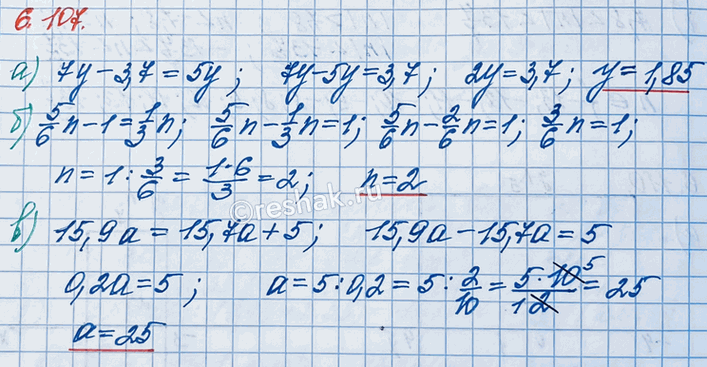 6.107.
а) 7y - 3,7 = 5y; 7y - 5y = 3,7; 2y = 3,7; y = 1,85
б) 5/6 n - 1 = 1/3 n; 5/6 n - 1/3 n = 1; 5/6 n - 2/6 n = 1; 3/6 n = 1;
n = 1 : 3/6 = 1·6/3 = 2; n = 2
©reshak.ru
в) 15,9a = 15,7a + 5; 15,9a - 15,7a = 5
0,2a = 5; a = 5 : 0,2 = 5 : 2/10 = 5·10 5/1 2 = 25
a = 25